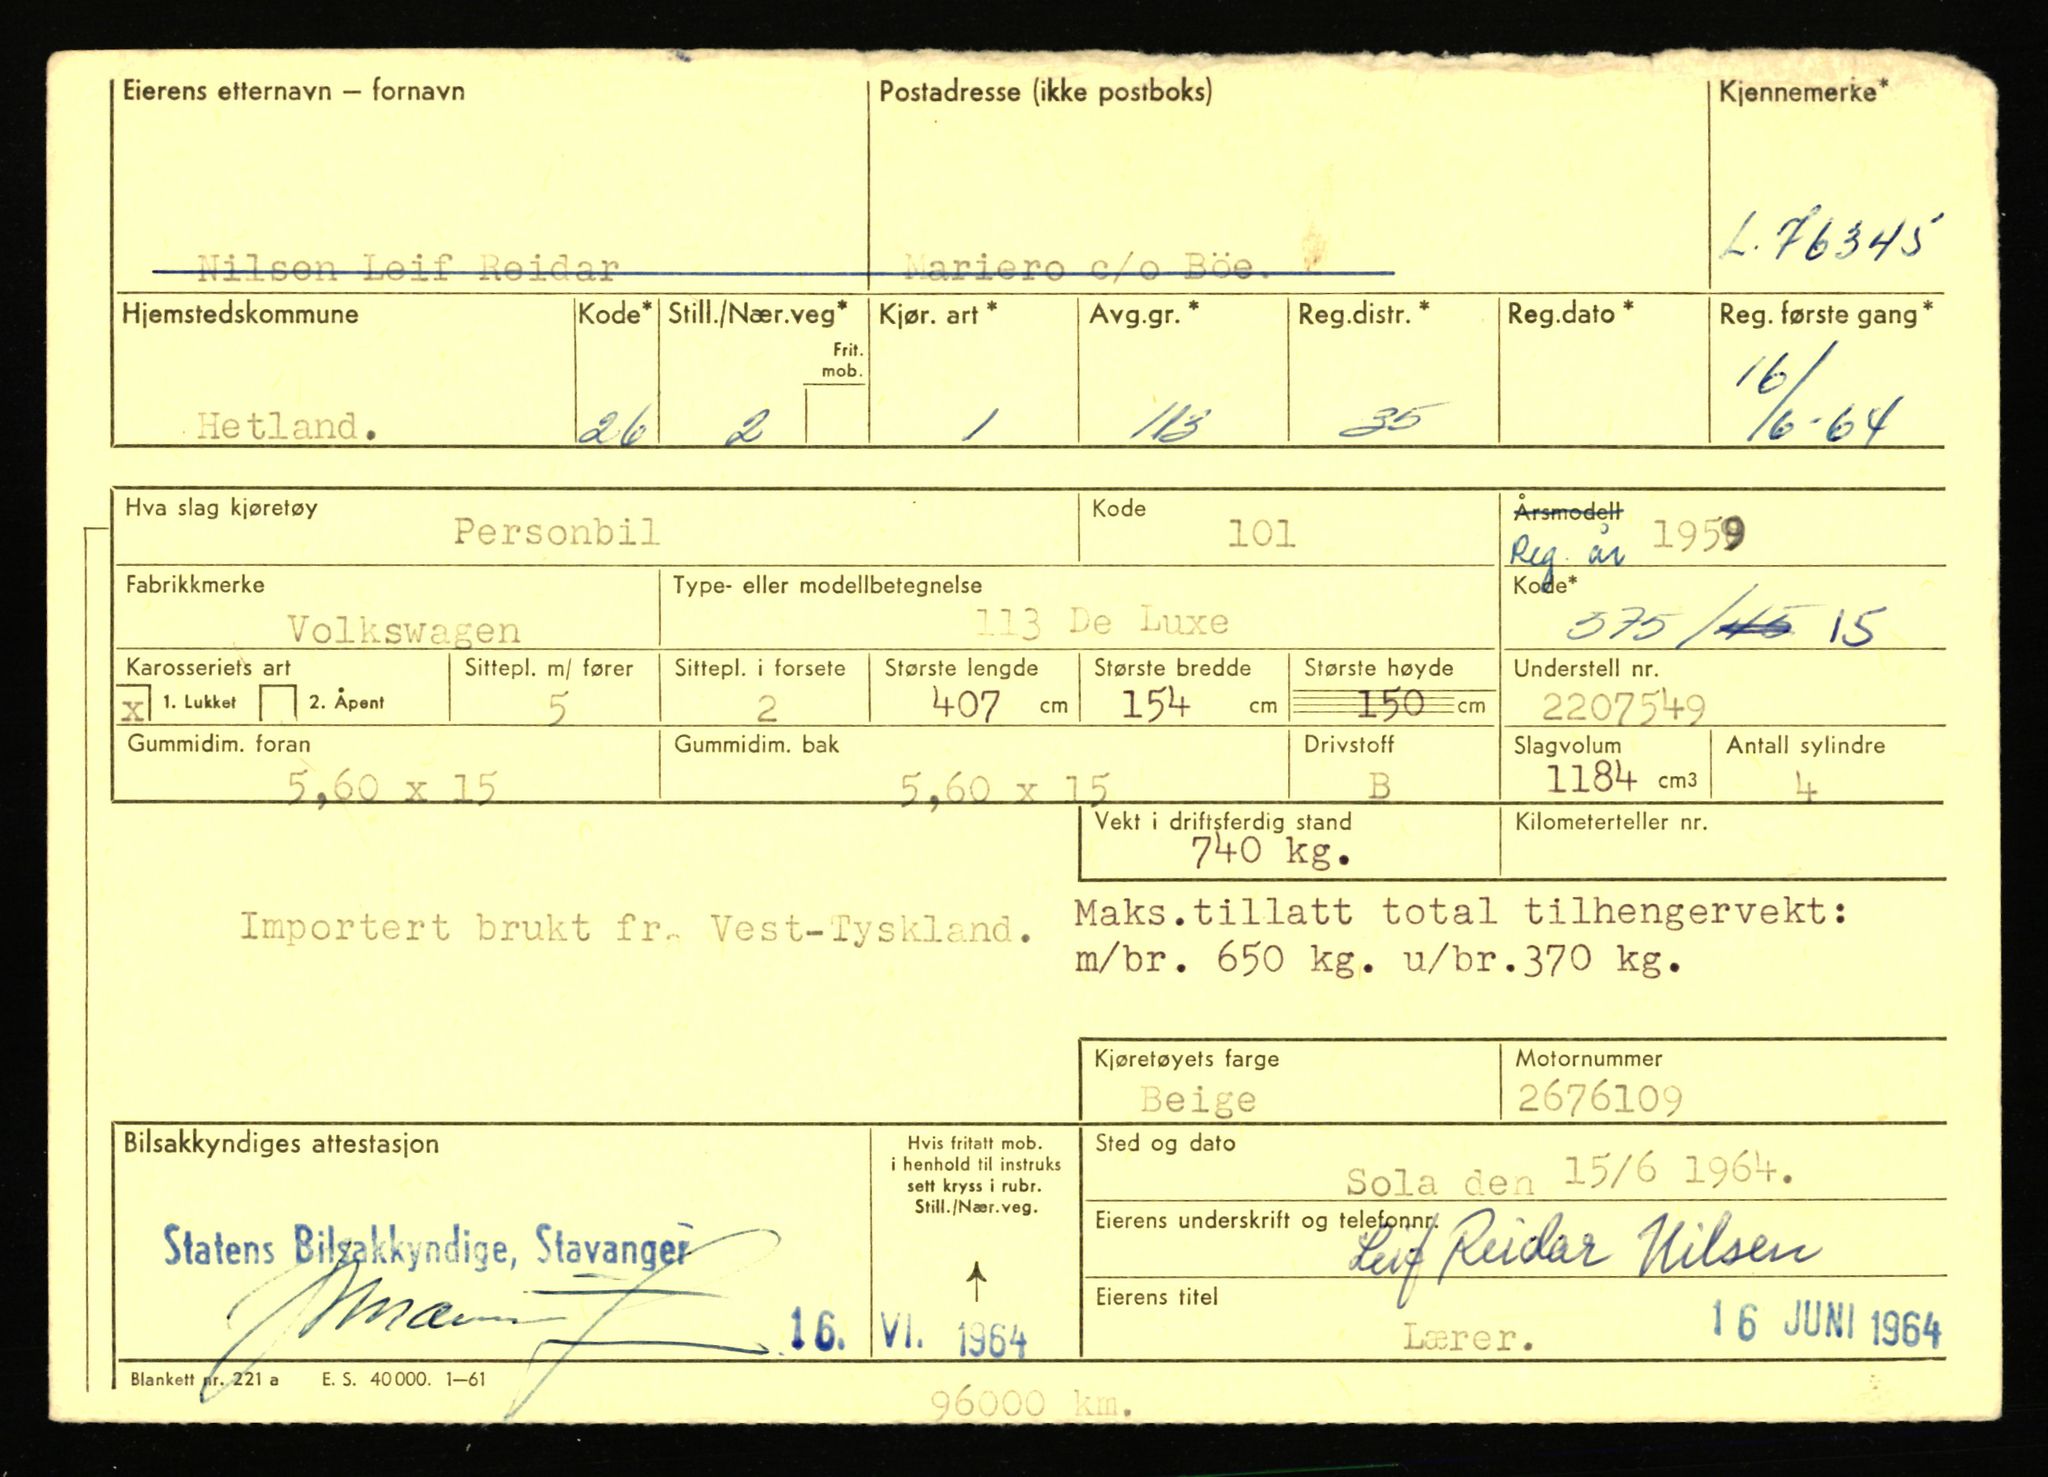 Eierens etternavn – fornavn
Postadresse (ikke postboks)
Kjennemerke*
Nilsen Leif Reidar
Mariero c/o Böe.
L. 76345
Hjemstedskommune
Kode*
Still./Nær.veg*
Frit.
mob.
Kjør. art*
Avg.gr.*
Reg.distr.*
Reg.dato*
Reg. første gang*
Hetland.
26
2
1
113
35
16/6-64
Hva slag kjøretøy
Personbil
Kode
101
Årsmodell
Reg. år
1959
Fabrikkmerke
Volkswagen
Type- eller modellbetegnelse
113 De Luxe
Kode*
375/45 15
Karosseriets art
x 1. Lukket
2. Åpent
Sittepl. m/ fører
5
Sittepl. i forsete
2
Største lengde
407 cm
Største bredde
154 cm
Største høyde
150 cm
Understell nr.
2207549
Gummidim. foran
5,60 x 15
Gummidim. bak
5,60 x 15
Drivstoff
B
Slagvolum
1184 cm3
Antall sylindre
4
Vekt i driftsferdig stand
740 kg.
Kilometerteller nr.
Importert brukt fr. Vest-Tyskland.
Maks.tillatt total tilhengervekt:
m/br. 650 kg. u/br.370 kg.
Kjøretøyets farge
Beige
Motornummer
2676109
Bilsakkyndiges attestasjon
Statens Bilsakkyndige, Stavanger
16. VI. 1964
Hvis fritatt mob.
i henhold til instruks
sett kryss i rubr.
Still./Nær.veg.
Sted og dato
Sola den 15/6 1964.
Eierens underskrift og telefonnr.
Leif Reidar Nilsen
Eierens titel
Lærer.
16 JUNI 1964
Blankett nr. 221 a E. S. 40 000. 1–61
96000 km.